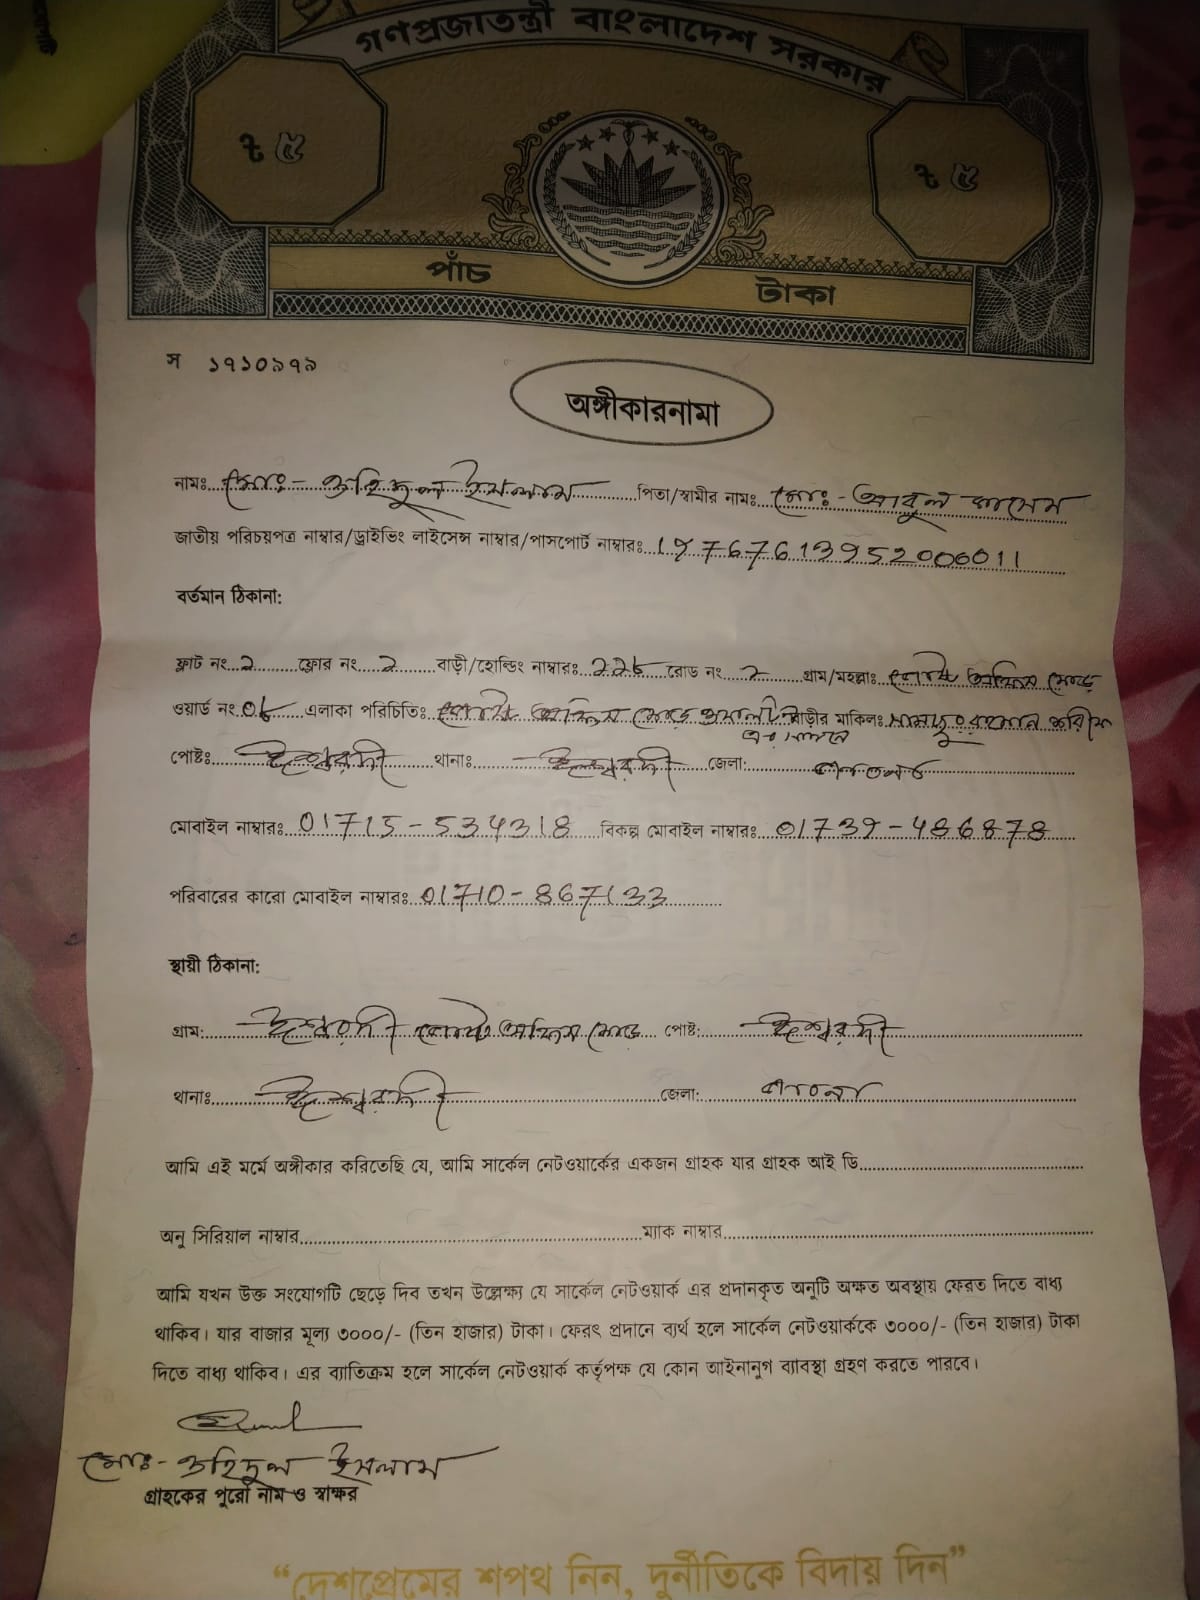 গণপ্রজাতন্ত্রী বাংলাদেশ সরকার
৳ ৫ ৳ ৫
পাঁচ টাকা
স ১৭১০৯৭৯
অঙ্গীকারনামা
নামঃ মোঃ- তহিদুল ইসলাম পিতা/স্বামীর নামঃ মোঃ- আবুল কাসেম
জাতীয় পরিচয়পত্র নাম্বার/ড্রাইভিং লাইসেন্স নাম্বার/পাসপোর্ট নাম্বারঃ 19767613952006011
বর্তমান ঠিকানা:
ফ্লাট নং 2 ফ্লোর নং 2 বাড়ী/হোল্ডিং নাম্বারঃ রোড নং 2 গ্রাম/মহল্লাঃ পোষ্ট অফিস মোড়
ওয়ার্ড নং এলাকা পরিচিতিঃ পোষ্ট অফিস মোড় বাড়ীর মালিকঃ
পোষ্টঃ ঈশ্বরদী থানাঃ ঈশ্বরদী জেলা: পাবনা
মোবাইল নাম্বারঃ 01715-534318 বিকল্প মোবাইল নাম্বারঃ 01739-486878
পরিবারের কারো মোবাইল নাম্বারঃ 01710-867133
স্থায়ী ঠিকানা:
গ্রাম: ঈশ্বরদী পোষ্ট অফিস মোড় পোষ্ট: ঈশ্বরদী
থানাঃ ঈশ্বরদী জেলা: পাবনা
আমি এই মর্মে অঙ্গীকার করিতেছি যে, আমি সার্কেল নেটওয়ার্কের একজন গ্রাহক যার গ্রাহক আই ডি
অনু সিরিয়াল নাম্বার ম্যাক নাম্বার
আমি যখন উক্ত সংযোগটি ছেড়ে দিব তখন উল্লেক্ষ্য যে সার্কেল নেটওয়ার্ক এর প্রদানকৃত অনুটি অক্ষত অবস্থায় ফেরত দিতে বাধ্য
থাকিব। যার বাজার মূল্য ৩০০০/- (তিন হাজার) টাকা। ফেরৎ প্রদানে ব্যর্থ হলে সার্কেল নেটওয়ার্ককে ৩০০০/- (তিন হাজার) টাকা
দিতে বাধ্য থাকিব। এর ব্যাতিক্রম হলে সার্কেল নেটওয়ার্ক কর্তৃপক্ষ যে কোন আইনানুগ ব্যাবস্থা গ্রহণ করতে পারবে।
মোঃ- তহিদুল ইসলাম
গ্রাহকের পুরো নাম ও স্বাক্ষর
“দেশপ্রেমের শপথ নিন, দুর্নীতিকে বিদায় দিন”